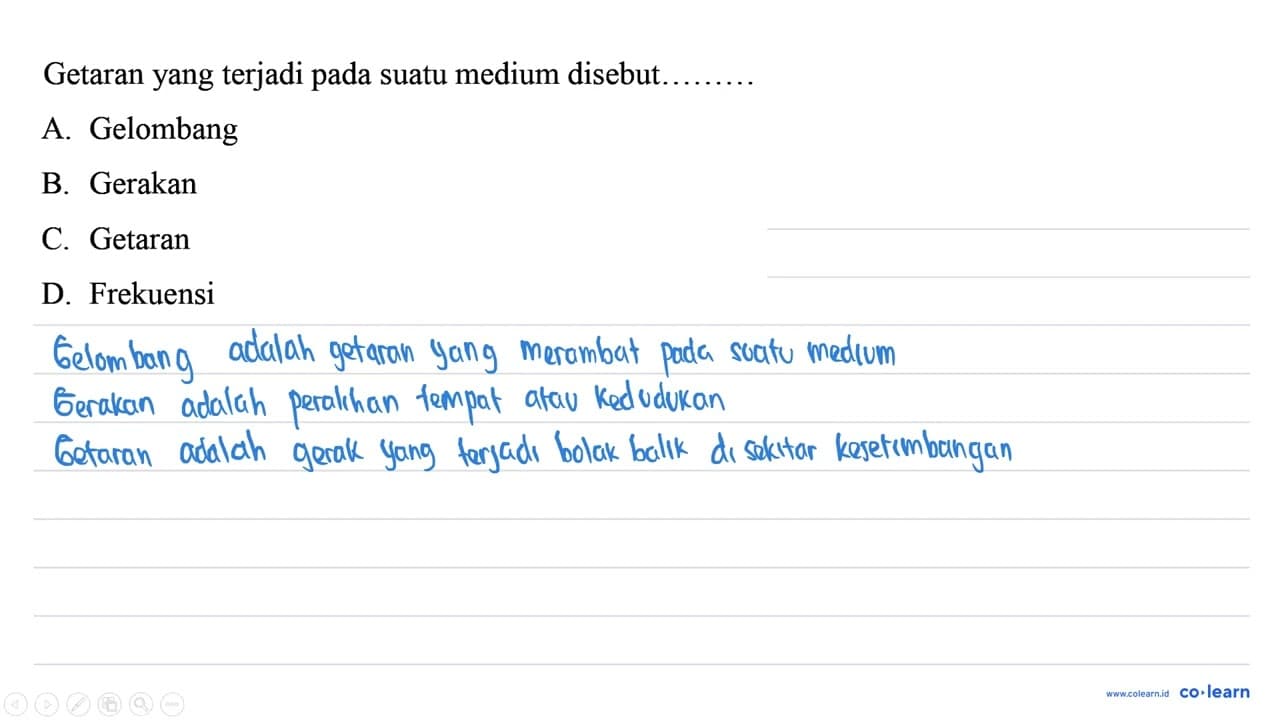 Getaran yang terjadi pada suatu medium disebut.........
A. Gelombang
B. Gerakan
C. Getaran
D. Frekuensi
Gelombang adalah getaran yang merambat pada suatu medium
Gerakan adalah peralihan tempat atau kedudukan
Getaran adalah gerak yang terjadi bolak balik di sekitar kesetimbangan
www.colearn.id co·learn